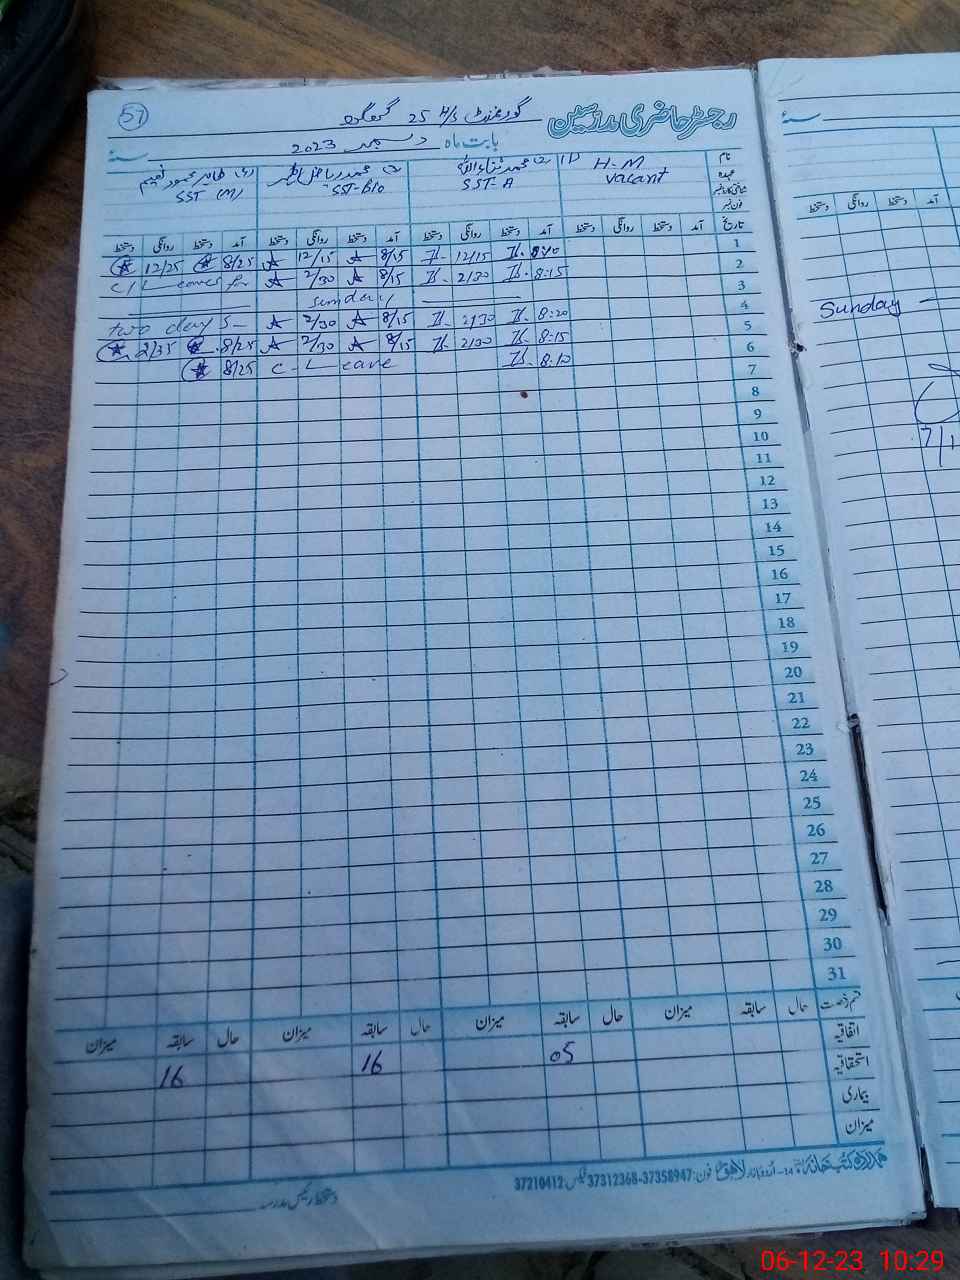 57
گورنمنٹ H/S 25
رجسٹر حاضری مدرسین
بابت ماہ دسمبر 2023 سنہ
نام H-M
عہدہ vacant
محمد ثناء اللہ
SST-A
محمد ریاض
SST-Bio
طاہر محمود نعیم
SST (M)
تاریخ آمد دستخط روانگی دستخط آمد دستخط روانگی دستخط آمد دستخط روانگی دستخط آمد دستخط روانگی دستخط
1 12/15 8/15 12/15 8/25 12/25
2 8:15 2/30 8/15 2/30 C/Leaves for
3 Sunday
4 8:20 2/30 8/15 2/30 two days
5 8:15 2/30 8/15 2/30 8/25 2/35
6 8:10 C-Leave 8/25
7
8
9
10
11
12
13
14
15
16
17
18
19
20
21
22
23
24
25
26
27
28
29
30
31
قسم رخصت حال سابقہ میزان حال سابقہ میزان حال سابقہ میزان حال سابقہ میزان
اتفاقیہ 05 16 16
استحقاقیہ
بیماری
میزان
ہمدرد کتب خانہ 37312368-37358947 فون: لاہور اردو بازار فیکس 37210412
دستخط رئیس مدرسہ
سنہ
دستخط روانگی دستخط آمد
Sunday
06-12-23 10:29